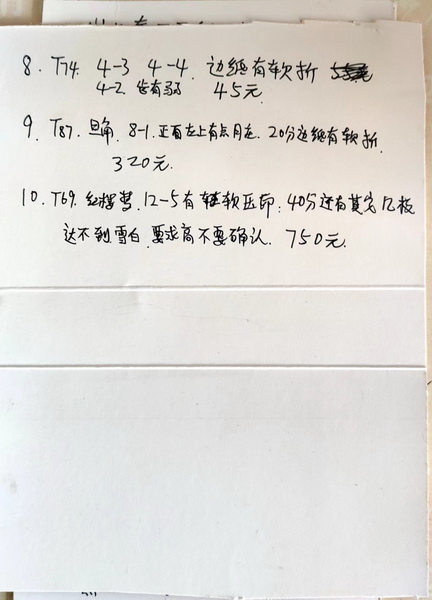 8. T74. 4-3 4-4. 边纸有软折
4-2. 背有弱 45元
9. T87. 旦角. 8-1. 正面左上有点月在. 20分边纸有软折.
320元.
10. T69. 红楼梦. 12-5有软压印: 40分还有其它几枚
达不到雪白. 要求高不要确认. 750元.